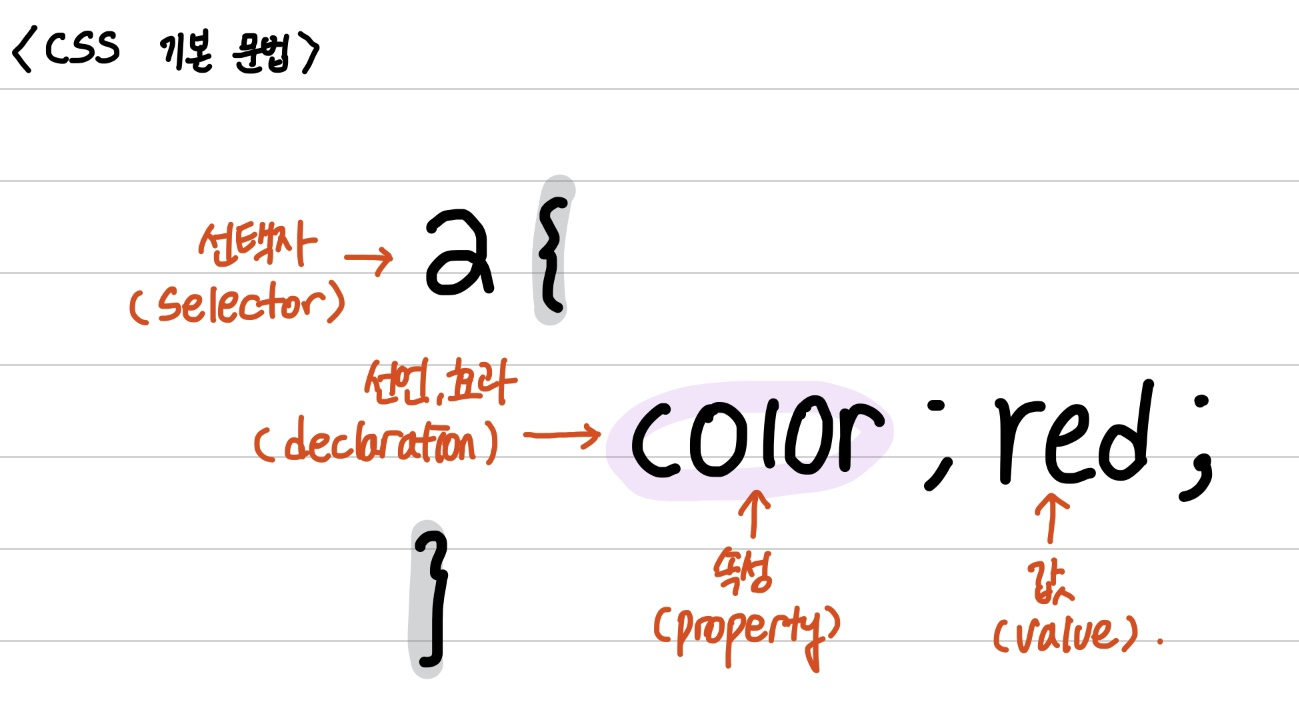 <CSS 기본 문법>
선택자 → a {
(Selector)
선언, 효과
(declaration) → color ; red ;
}
속성
(property)
값
(value) .